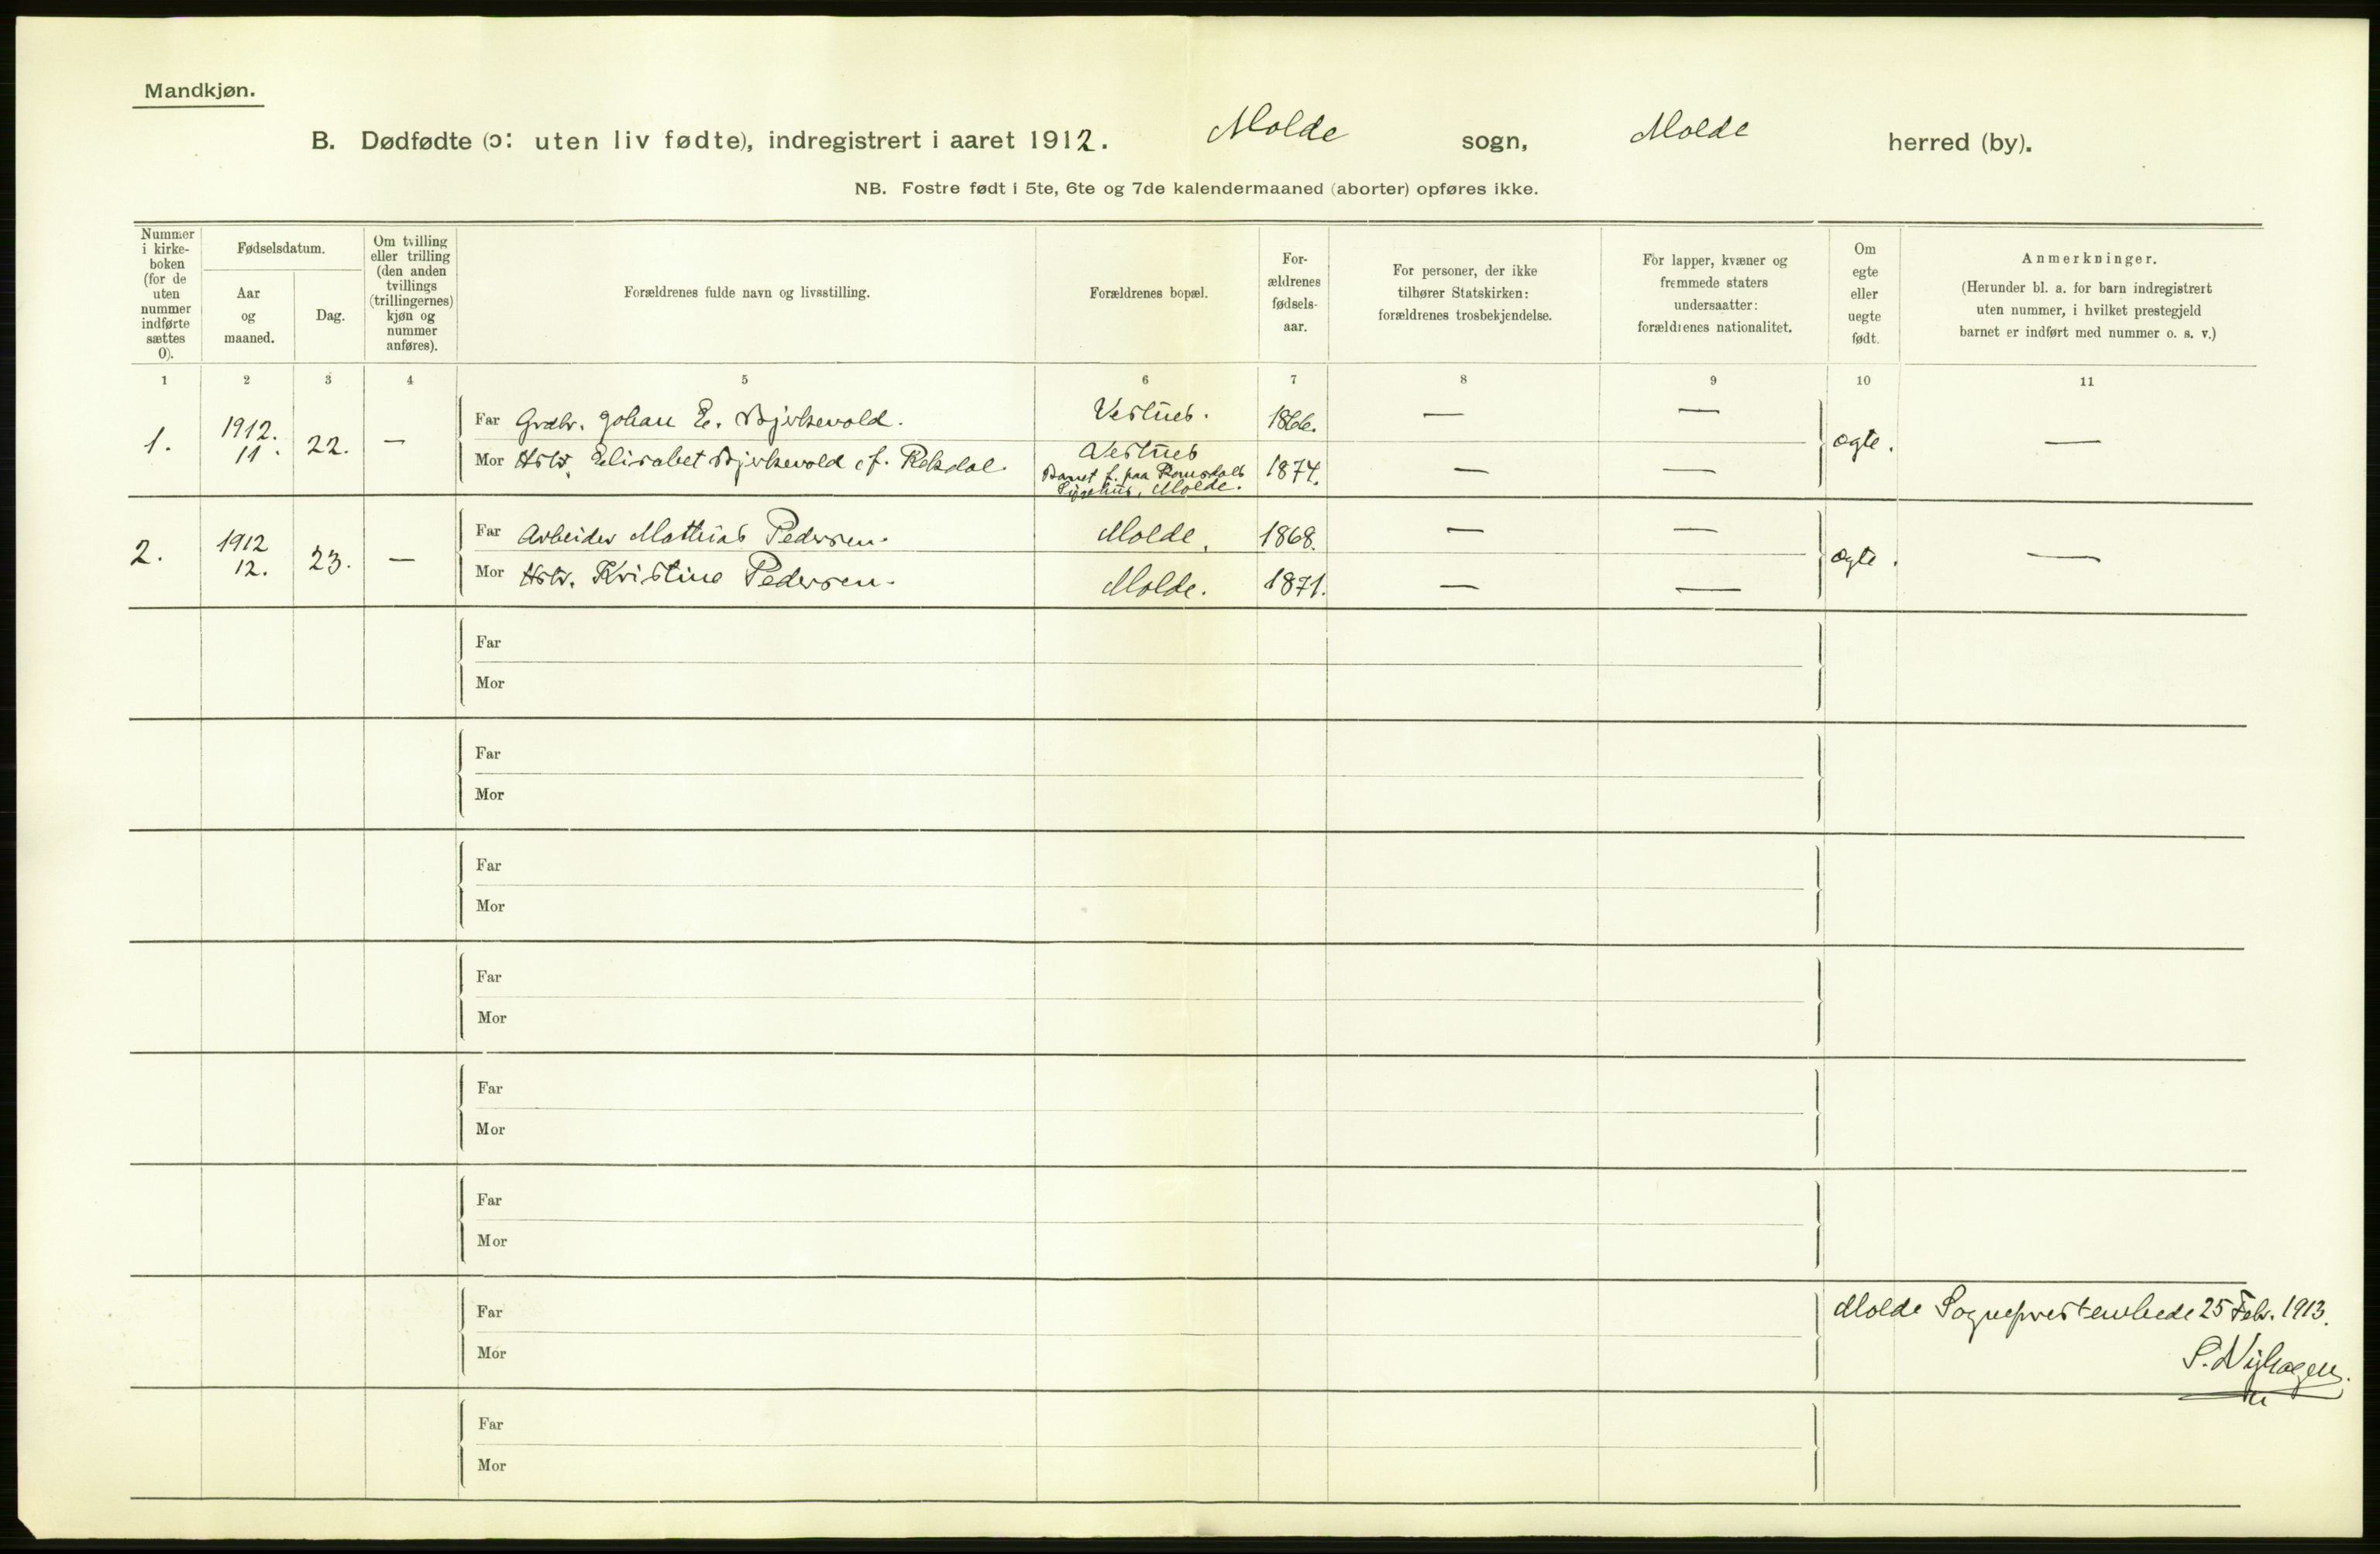 Mandkjøn.
B. Dødfødte (ɔ: uten liv fødte), indregistrert i aaret 1912. Molde sogn, Molde herred (by).
NB. Fostre født i 5te, 6te og 7de kalendermaaned (aborter) opføres ikke.
Nummer i kirke-boken (for de uten nummer indførte sættes 0).
Fødselsdatum.
Aar og maaned.
Dag.
Om tvilling eller trilling (den anden tvillings (trillingernes) kjøn og nummer anføres).
Forældrenes fulde navn og livsstilling.
Forældrenes bopæl.
For-ældrenes fødsels-aar.
For personer, der ikke tilhører Statskirken: forældrenes trosbekjendelse.
For lapper, kvæner og fremmede staters undersaatter: forældrenes nationalitet.
Om egte eller uegte født.
Anmerkninger.
(Herunder bl. a. for barn indregistrert uten nummer, i hvilket prestegjeld barnet er indført med nummer o. s. v.)
1 2 3 4 5 6 7 8 9 10 11
1. 1912. 11. 22. — Far Grdbr. Johan E. Bjerkevold. Vestnes. 1866. — — ægte. —
Mor Hstr. Elisabet Bjerkevold f. Rekdal. Vestnes 1874. — —
Barnet f. paa Romsdals
Sygehus, Molde.
2. 1912 12. 23. — Far Arbeider Mathias Pedersen. Molde. 1868. — — ægte. —
Mor Hstr. Kristine Pedersen. Molde. 1871. — —
Far
Mor
Far
Mor
Far
Mor
Far
Mor
Far
Mor
Far
Mor
Far
Mor
Molde Sogneprestembede 25 Febr. 1913.
S. Nyhagen.
Far
Mor